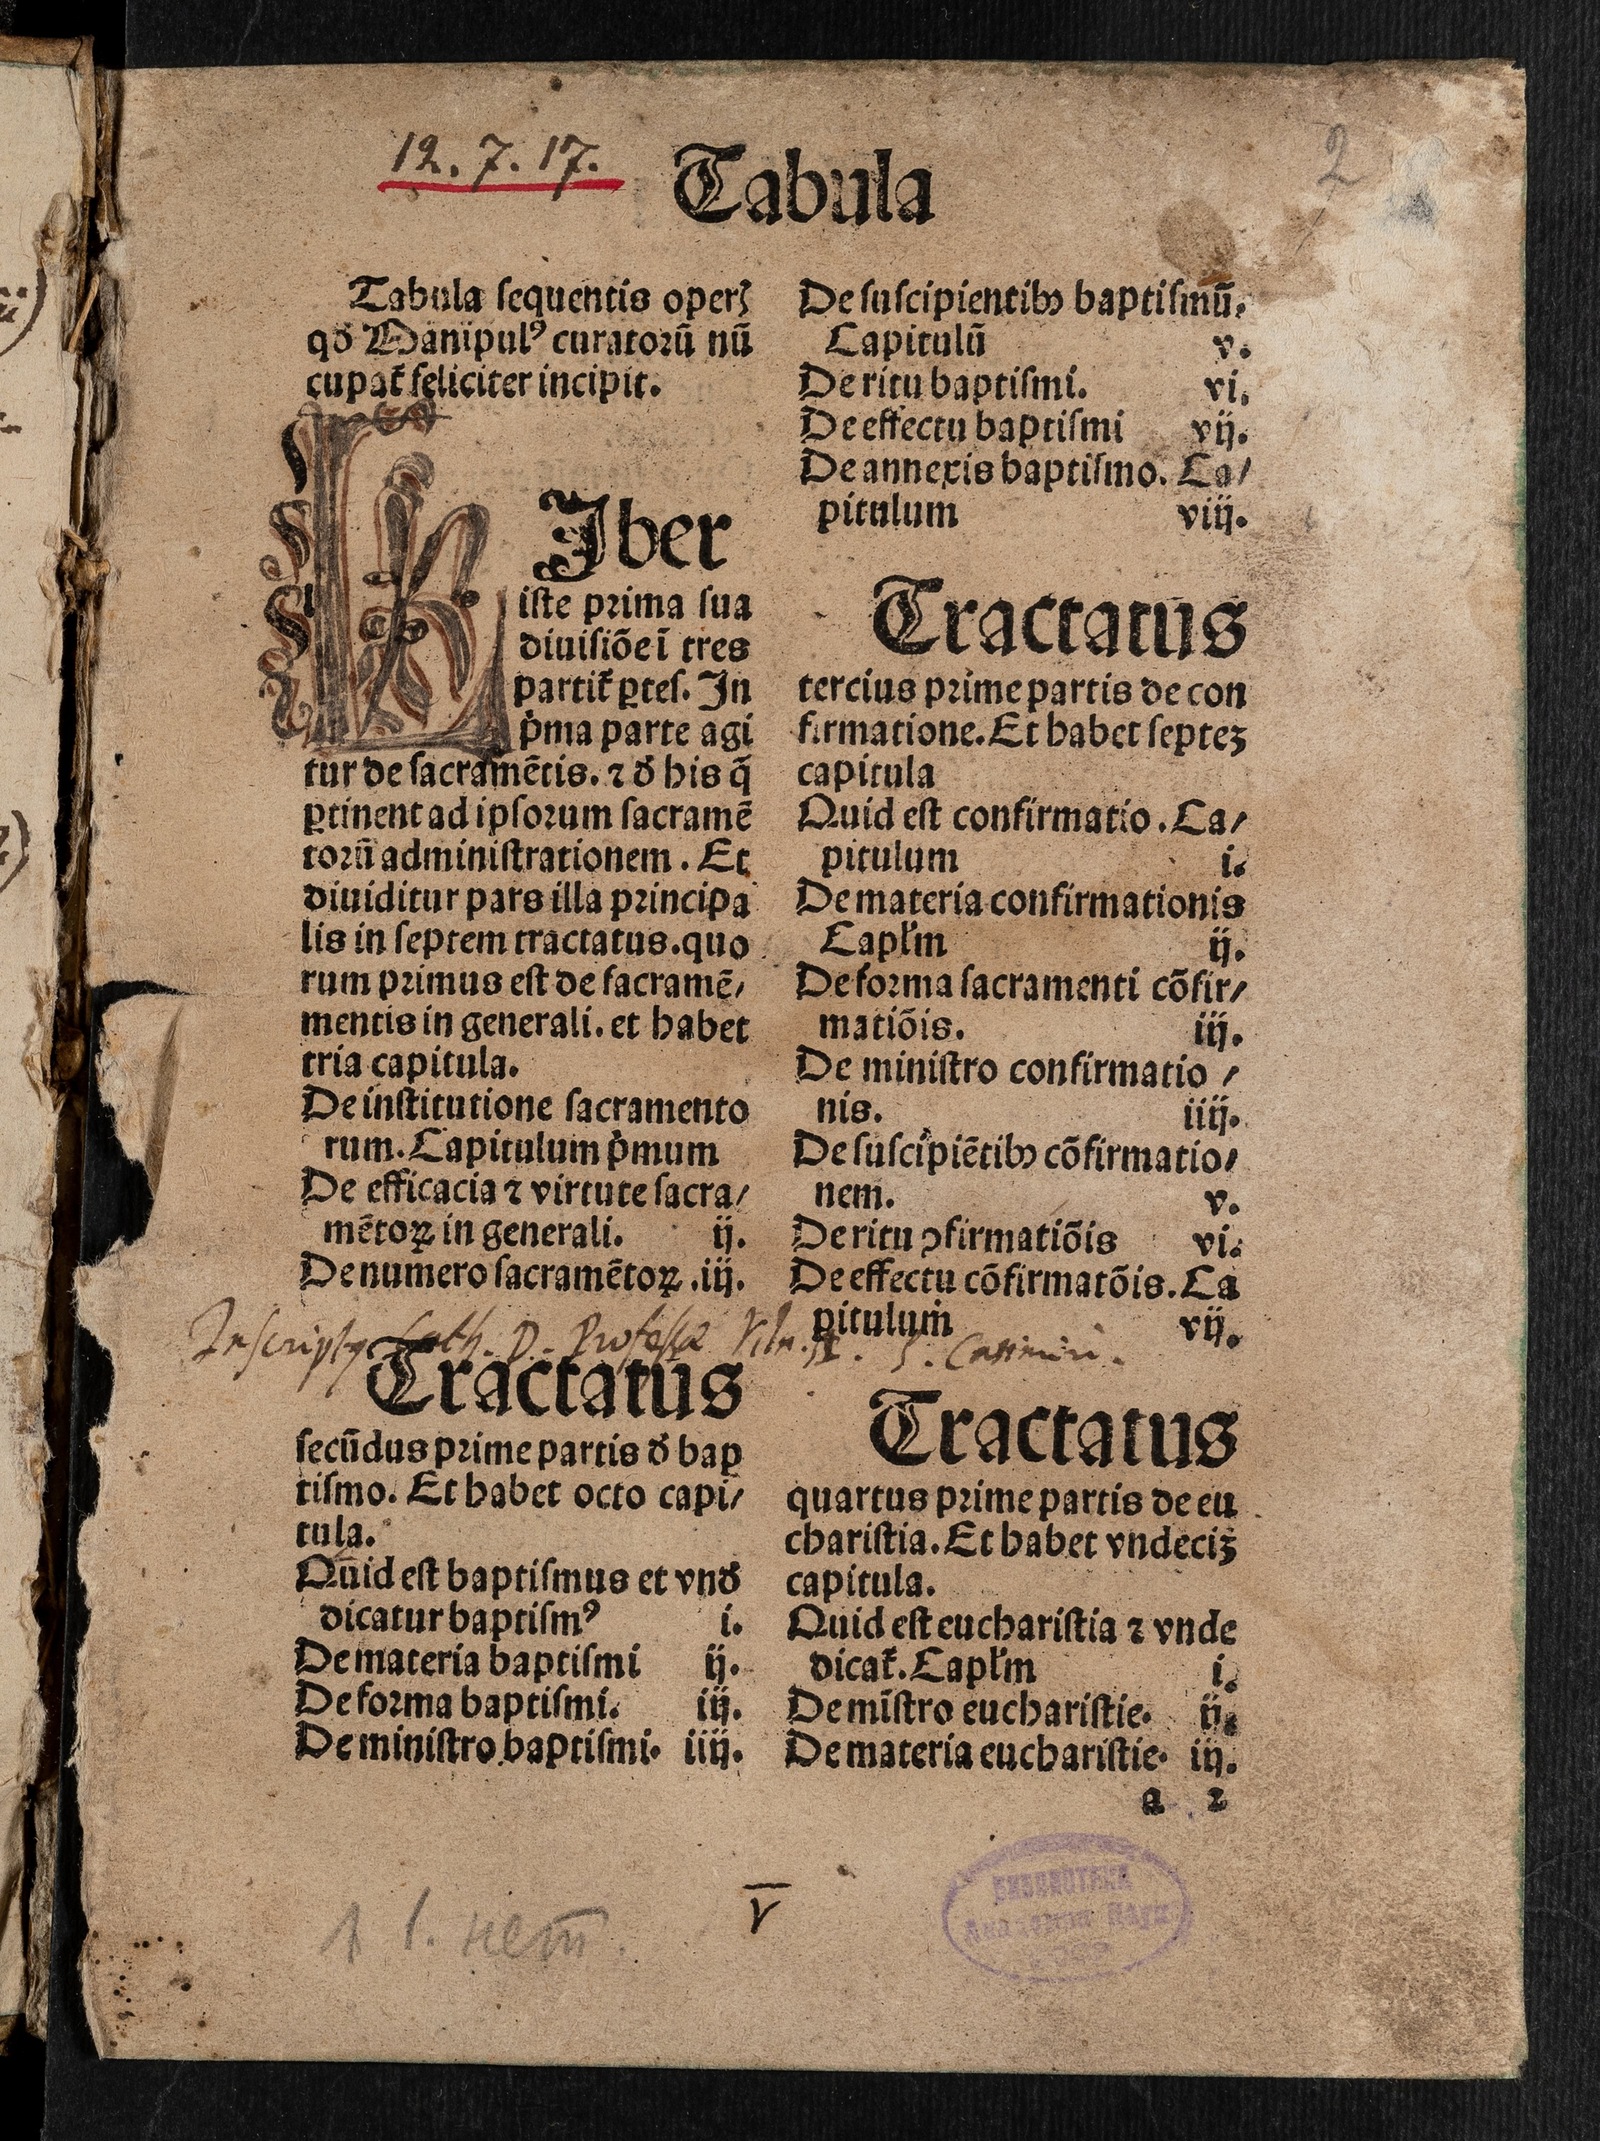 12. 7. 17.
2
Tabula
Tabula ſequentis operꝭ
qď Manipulꝰ curatoꝛū nū
cupat᷑ feliciter incipit.
LIber
iſte pꝛima ſua
diuiſiōe ī tres
partit᷑ ꝑtes. In
p̍ma parte agi
tur de ſacramētis. ⁊ ď his q̄
ꝑtinent ad ipſoꝛum ſacramē
toꝛū adminiſtrationem. Et
diuiditur pars illa pꝛincipa
lis in ſeptem tractatus. quo
rum pꝛimus eſt de ſacramē/
mentis in generali. et habet
tria capitula.
De inſtitutione ſacramento
rum. Capitulum p̍mum
De efficacia ⁊ virtute ſacra/
mētoꝝ in generali. ij.
De numero ſacramētoꝝ. iij.
Tractatus
ſecūdus pꝛime partis ď bap
tiſmo. Et habet octo capi/
tula.
Quid eſt baptiſmus et vnď
dicatur baptiſmꝰ i.
De materia baptiſmi ij.
De foꝛma baptiſmi. iij.
De miniſtro baptiſmi. iiij.
De ſuſcipientibꝰ baptiſmū.
Capitulū v.
De ritu baptiſmi. vi.
De effectu baptiſmi vij.
De annexis baptiſmo. Ca/
pitulum viij.
Tractatus
tercius pꝛime partis de con
firmatione. Et habet ſepteꝫ
capitula
Quid eſt confirmatio. Ca/
pitulum i.
De materia confirmationis
Capľm ij.
De foꝛma ſacramenti cōfir/
matiōis. iij.
De miniſtro confirmatio/
nis. iiij.
De ſuſcipiētibꝰ cōfirmatio/
nem. v.
De ritu ꝯfirmatiōis vi.
De effectu cōfirmatōis. Ca
pitulum vij.
Tractatus
quartus pꝛime partis de eu
chariſtia. Et habet vndeciꝫ
capitula.
Quid eſt euchariſtia ⁊ vnde
dicat᷑. Capľm i.
De mīſtro euchariſtie. ij.
De materia euchariſtie. iij.
a 2
Cath. D. Professæ Viln. S. Casimiri.
V
1 1. нет.
БИБЛИОТЕКА
Академии Наук